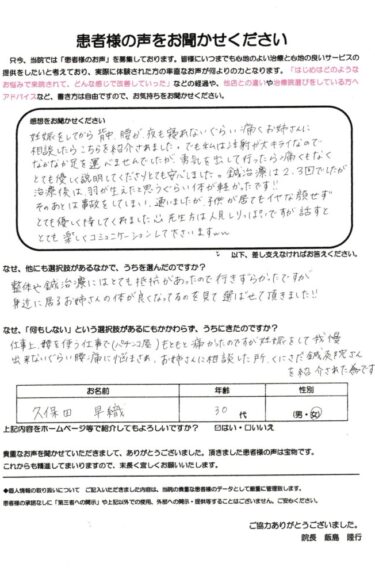 患者様の声をお聞かせください
只今、当院では「患者様のお声」を募集しております。皆様にいつまでも心地のよい治療と心地の良いサービスの
提供をしたいと考えており、実際に体験された方の率直なお声が何よりの力となります。「はじめはどのような
お悩みで来院されて、どんな感じで改善していった」などの経過や、他店との違いや治療院選びをしている方へ
アドバイスなど、書き方は自由ですので、お気持ちをお聞かせください。
感想をお聞かせください
妊娠をしてから背中、腰が夜も寝れないぐらい痛くお姉さんに
相談したらこちらを紹介されました。でも私は注射が大キライなので
なかなか足を運べませんでしたが、勇気を出して行ったら痛くもなく
とても優しく説明してくださりとても安心しました。鍼治療は2、3回でしたが
治療後は羽が生えたと思うぐらい体が軽かったです!!
そのあとは事故をしてしまい、通いましたが子供が居てもイヤな顔せず
とても優しく接してくれました 先生方は人見しりっぽいですが話すと
とても楽しくコミュニケーションして下さいますww
以下、差し支えなければお答えください。
なぜ、他にも選択肢があるなかで、うちを選んだのですか?
整体や鍼治療にはとても抵抗があったので行きずらかったですが
身近に居るお姉さんの体が良くなってるのを見て選ばせて頂きました!!
なぜ、「何もしない」という選択肢があるにもかかわらず、うちにきたのですか?
仕事上、腰を使う仕事で(パチンコ屋)もともと痛かったのですが妊娠をして我慢
出来ないぐらい腰痛に悩まされ、お姉さんに相談した所、くにさだ鍼灸院さん
を紹介された為です
お名前 年齢 性別
久保田 早織 30代 (男・女)
上記内容をホームページ等で紹介してもよろしいですか? ☑はい・☐いいえ
貴重なお声を聞かせていただきまして、ありがとうございました。頂きました患者様の声は宝物です。
これからも精進してまいりますので、末長く宜しくお願いいたします。
◆個人情報の取り扱いについて ご記入いただきました内容は、当院の貴重な患者様のデータとして厳重に管理致します。
患者様の承諾なしに「第三者への開示」や上記以外での使用、外部への開示・提供等することはございません。ご安心ください。
ご協力ありがとうございました。
院長 飯島 隆行